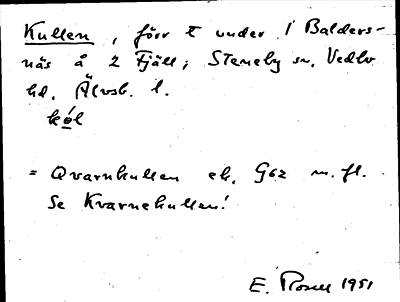 Kullen, förr t under 1 Balders-
näs å 2 Fjäll; Steneby sn, Vedbo
hd. Älvsb. l.
kól
= Qvarnkullen ek. G62 m. fl.
Se Kvarnekullen!
E. Rosell 1951